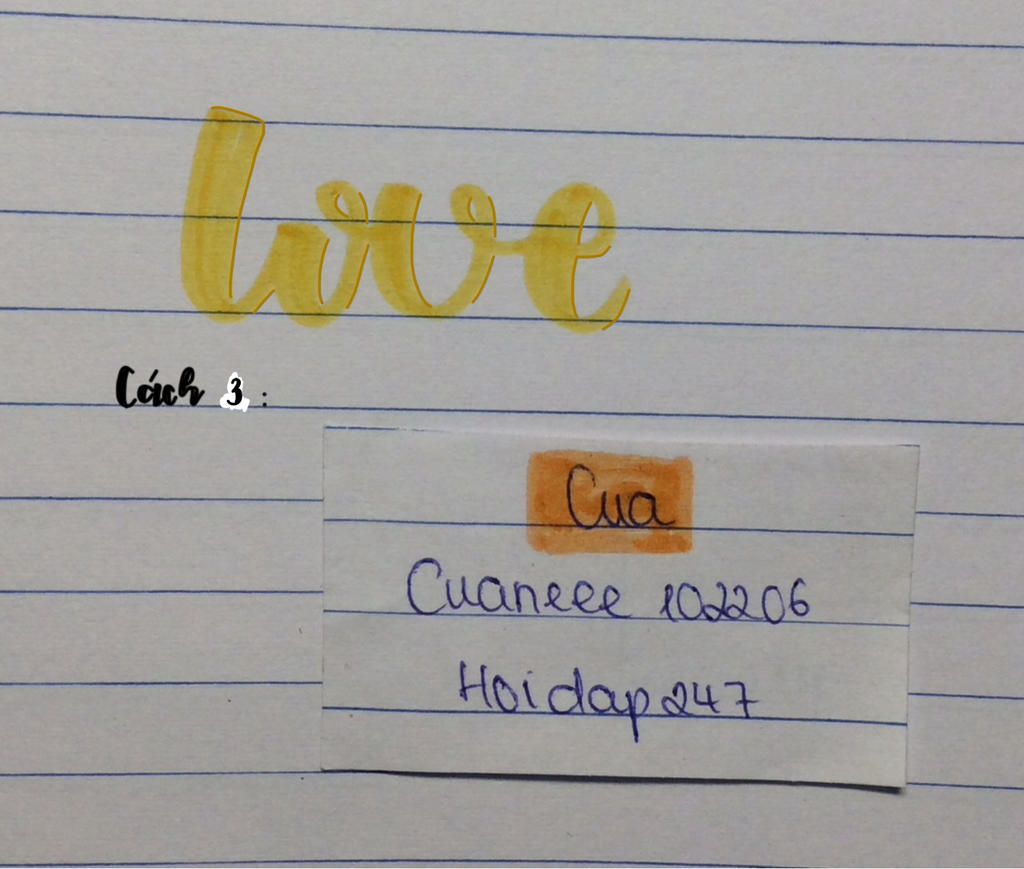 love
Cách 3 :
Cua
Cuaneee 102206
Hoidap247